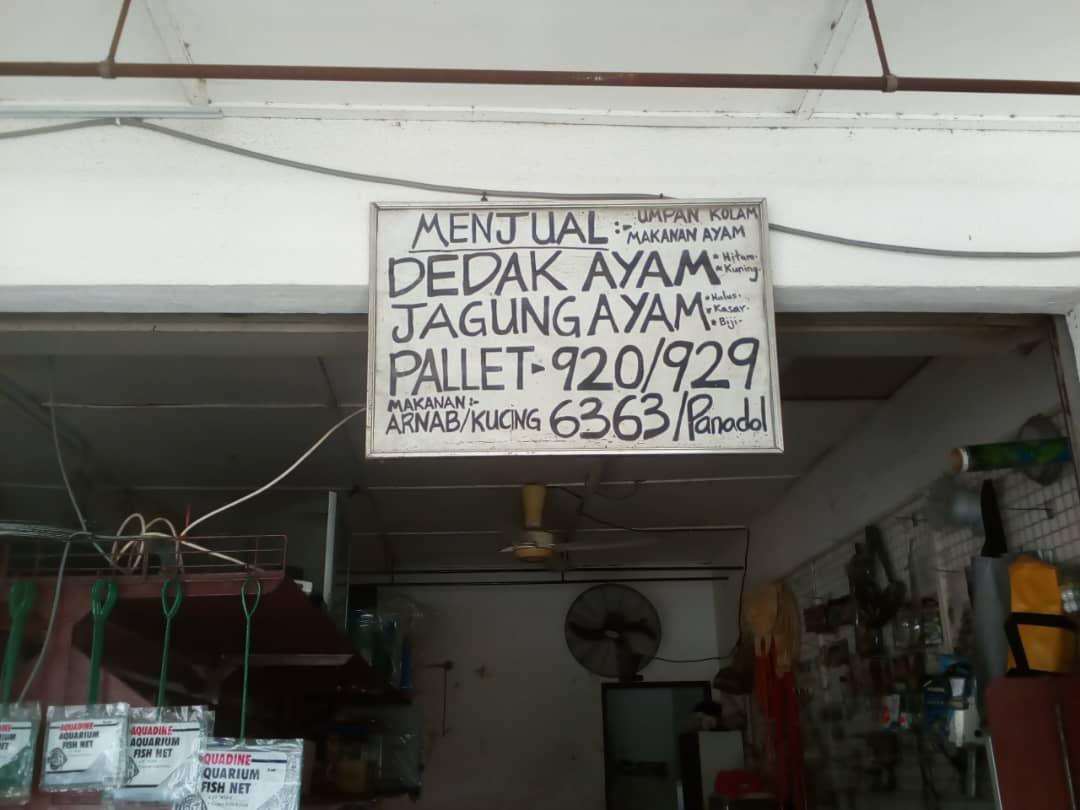 MENJUAL :- UMPAN KOLAM
MAKANAN AYAM
DEDAK AYAM • Hitam.
• Kuning.
JAGUNG AYAM • Halus.
• Kasar.
• Biji.
PALLET - 920/929
MAKANAN :-
ARNAB/KUCING 6363/Panadol
AQUARIUM
NET
AQUADINE
AQUARIUM
FISH NET
AQUADINE
AQUARIUM
FISH NET
QUADINE
QUARIUM
FISH NET